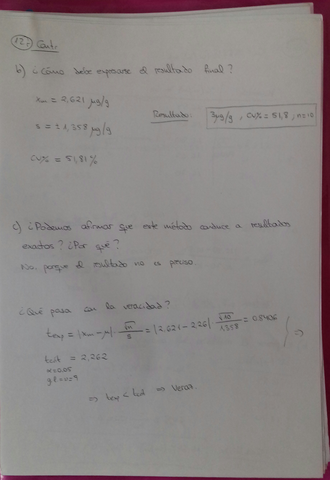 12, Cont.
b) ¿Cómo debe expresarse el resultado final?
xm = 2,621 µg/g
s = ±1,358 µg/g
Resultado: 3µg/g, CV% = 51,8, n=10
CV% = 51,81%
c) ¿Podemos afirmar que este método conduce a resultados
exactos? ¿Por qué?
No, porque el resultado no es preciso
¿Qué pasa con la veracidad?
texp = |xm - µ| · √n/s = |2,621 - 2,26| √10/1,358 = 0,5406
tcrit = 2,262
α=0,05
gl=n=9
=> texp < tcrit => Veraz.